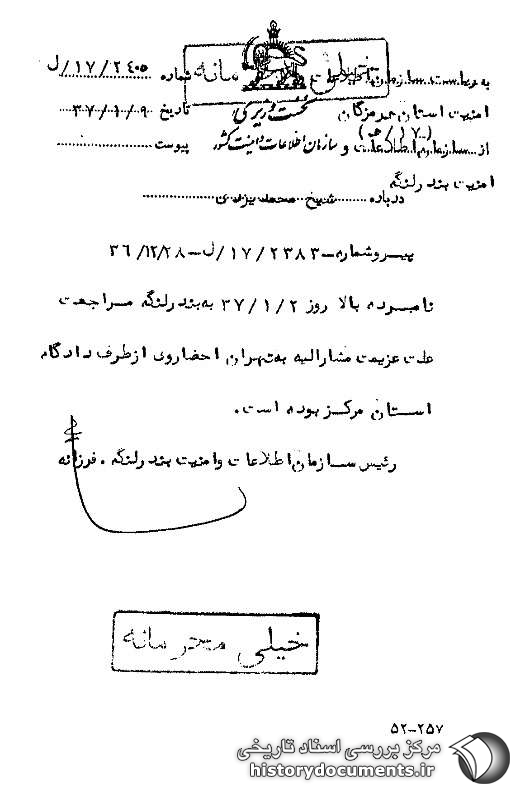 خیلی محرمانه
به ریاست سازمان اطلاعات شماره ۲۴۰۵/۱۷/ل
امنیت استان هرمزگان نخست وزیری تاریخ ۳۷/۱/۹
(۱۷/ه)
از سازمان اطلاعات و سازمان اطلاعات و امنیت کشور پیوست
امنیت بندر لنگه
درباره شیخ محمد یزدی
پیرو شماره-۲۳۸۳/۱۷/ل-۳۶/۱۲/۲۸
نامبرده بالا روز ۳۷/۱/۲ به بندر لنگه مراجعت
علت عزیمت مشارالیه به تهران احضاروی ازطرف دادگاه
استان مرکز بوده است.
رئیس سازمان اطلاعات وامنیت بندر لنگه . فرزانه
خیلی محرمانه
۵۲-۲۵۷
مرکز بررسی اسناد تاریخی
historydocuments.ir